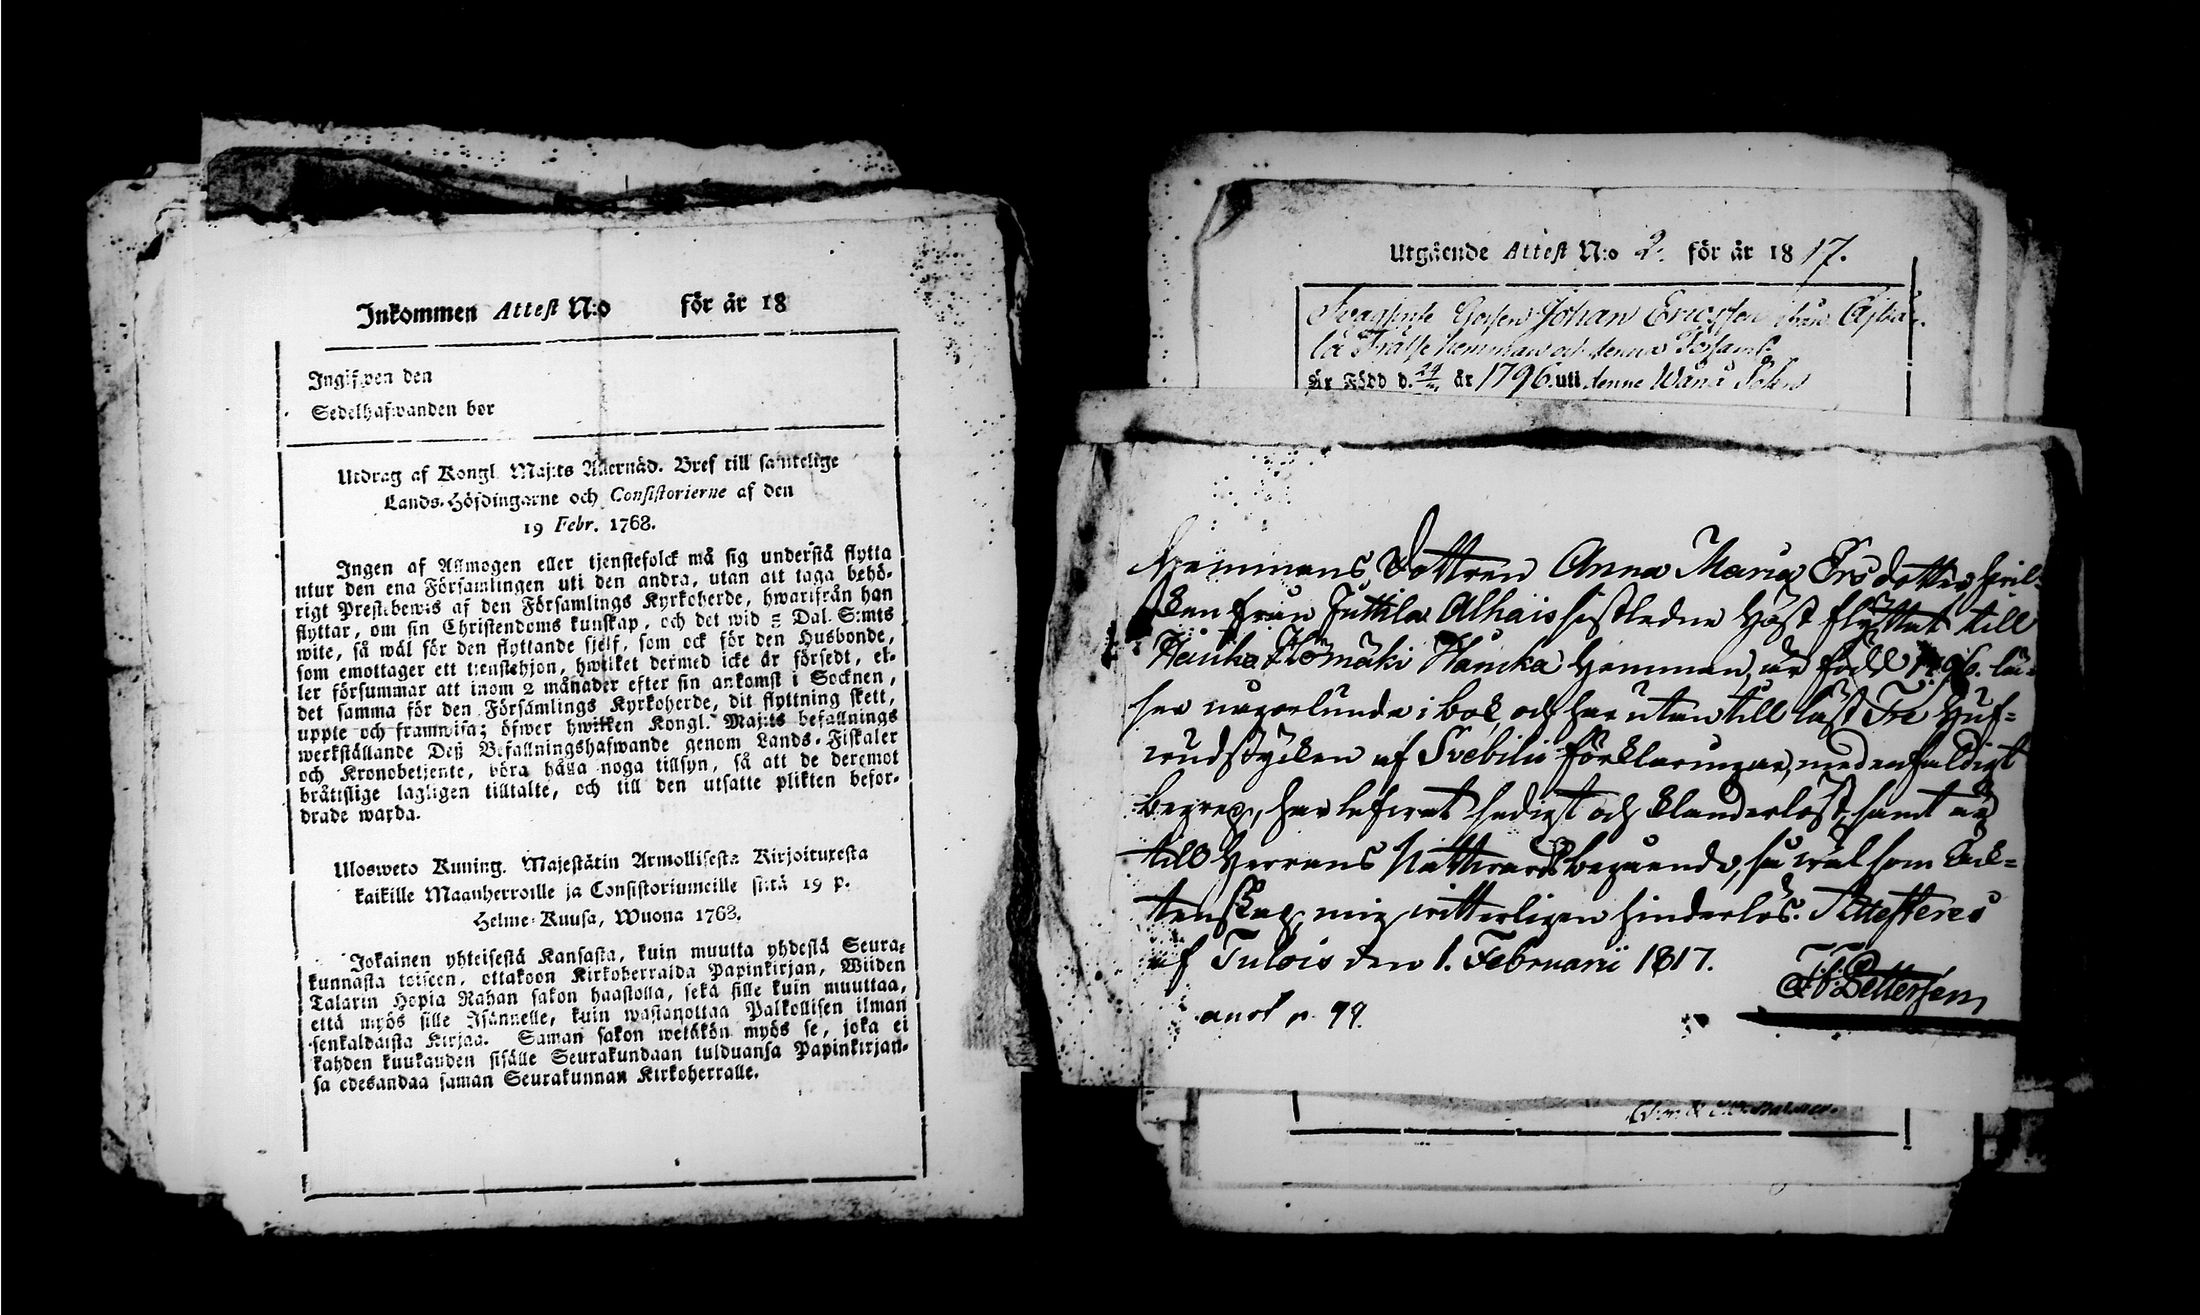 Inkommen Attest N:o för år 18
Ingifwen den
Sedelhafwanden bor
Utdrag af Kongl. Maj:ts Allernåd. Bref till samtelige
Lands-Höfdingarne och Consistorierne af den
19 Febr. 1768.
Ingen af Allmogen eller tjenstefolck må sig understå flytta
utur den ena Församlingen uti den andra, utan att taga behö-
rigt Prestebewis af den Församlings Kyrkoherde, hwarifrån han
flyttar, om sin Christendoms kunskap, och det wid 5 Dal. S:mts
wite, så wäl för den flyttande sjelf, som ock för den Husbonde,
som emottager ett tienstehjon, hwilket dermed icke är försedt, el-
ler försummar att inom 2 månader efter sin ankomst i Socknen,
det samma för den Församlings Kyrkoherde, dit flyttning skett,
uppte och framwisa; öfwer hwilken Kongl. Maj:ts befallnings
werkställande Deß Befallningshafwande genom Lands-Fiskaler
och Kronobetjente, böra hålla noga tillsyn, så att de deremot
bråttslige lagligen tilltalte, och till den utsatte plikten befor-
drade warda.
Ulosweto Kuning. Majestätin Armollisesta Kirjoituxesta
kaikille Maanherroille ja Consistoriumeille siitä 19 p.
Helme-Kuusa, Wuona 1768.
Jokainen yhteisestä Kansasta, kuin muutta yhdestä Seura-
kunnasta toiseen, ottakoon Kirkoherralda Papinkirjan, Wiiden
Talarin Hopia Rahan sakon haastolla, sekä sille kuin muuttaa,
että myös sille Isännelle, kuin wastanottaa Palkollisen ilman
senkaldaista Kirjaa. Saman sakon wetäkön myös se, joka ei
kahden kuukauden sisälle Seurakundaan tulduansa Papinkirjan-
sa edesandaa saman Seurakunnan Kirkoherralle.
Utgående Attest N:o 2. för år 1817.
Johan Ericsson ifrån
hemman och denna
Är Född d. 29 år 1796. uti denne Wånå Sokn
Hemmans Dottren Anna Maria Ersdotter, hvil-
ken från Juttila Alhais sistledne Höst flyttat till
Hauho Hömäki Hanska Hemman, är född 1796. lä-
ser någorlunda i bok, och har utantill läst Tre Huf-
wudstycken af Svebilii Förklaringar, med enfaldigt
begrep, har lefwat sedigt och klanderlöst, samt är
till Herrans Nattward begående, så wäl som Äck-
tenskap, mig witterligen hinderlös. Attesteres
af Tulois den 1. Februarii 1817.
Pettersen
anot p. 99.